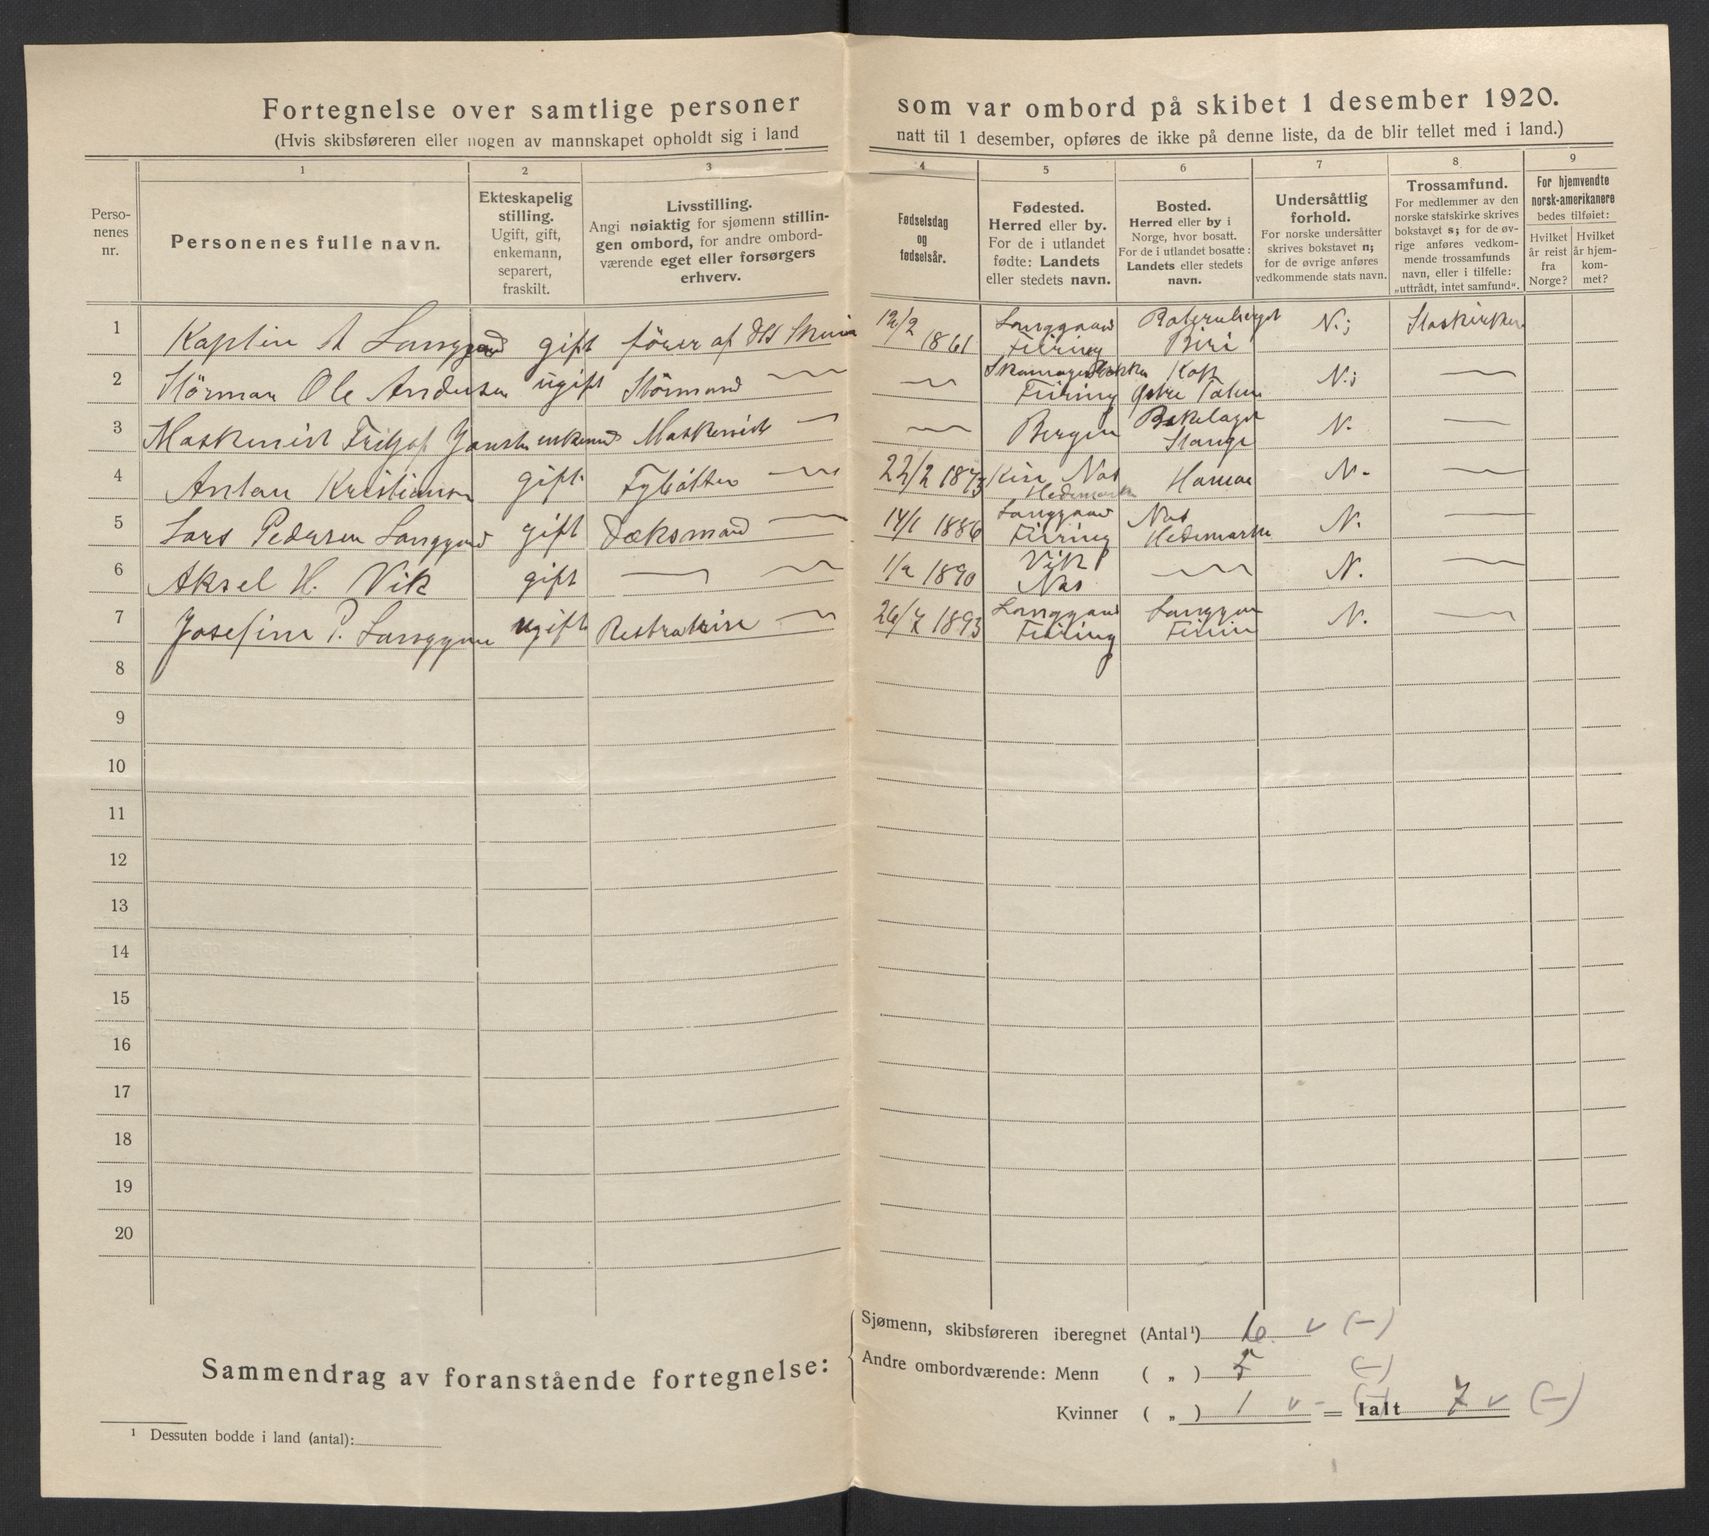 Fortegnelse over samtlige personer som var ombord på skibet 1 desember 1920.
(Hvis skibsføreren eller nogen av mannskapet opholdt sig i land natt til 1 desember, opføres de ikke på denne liste, da de blir tellet med i land.)
1 2 3 4 5 6 7 8 9
Perso-
nenes
nr.
Personenes fulle navn.
Ekteskapelig
stilling.
Ugift, gift,
enkemann,
separert,
fraskilt.
Livsstilling.
Angi nøiaktig for sjømenn stillin-
gen ombord, for andre ombord-
værende eget eller forsørgers
erhverv.
Fødselsdag
og
fødselsår.
Fødested.
Herred eller by.
For de i utlandet
fødte: Landets
eller stedets navn.
Bosted.
Herred eller by i
Norge, hvor bosatt.
For de i utlandet bosatte:
Landets eller stedets
navn.
Undersåttlig
forhold.
For norske undersåtter
skrives bokstavet n;
for de øvrige anføres
vedkommende stats navn.
Trossamfund.
For medlemmer av den
norske statskirke skrives
bokstavet s; for de øv-
rige anføres vedkom-
mende trossamfunds
navn, eller i tilfelle:
„uttrådt, intet samfund“.
For hjemvendte
norsk-amerikanere
bedes tilføiet:
Hvilket
år reist
fra
Norge?
Hvilket
år hjem-
kom-
met?
1 Kaptin A Langgaard gift fører af 12/2 1861 Langgaard Feiring Biri N.;
2 Störman Ole Andersen ugift Störmand — — Feiring Kap Østre Toten N.; —
3 Maskenist Fritjof Maskenist — — Bergen Stange N. —
4 Antan Kristiansen gift — 22/2 1873 Nas Hedemarken Hamar N. —
5 Lars Pedersen Langgaard gift Dæksmand — 14/1 1886 Langgaard Feiring Nas Hedemarken N. —
6 Aksel H. Vik gift — — 1890 Vik Nas — N. —
7 Josefine P. Langgaard ugift — 26/7 1893 Langgaard Feiring Langgaard Feiring N. —
8
9
10
11
12
13
14
15
16
17
18
19
20
Sammendrag av foranstående fortegnelse:
Sjømenn, skibsføreren iberegnet (Antal¹) 6 v (—)
Andre ombordværende: Menn ( „ ) (—)
Kvinner ( „ ) 1 v - (—) = Ialt 7 v (—)
¹ Dessuten bodde i land (antal):